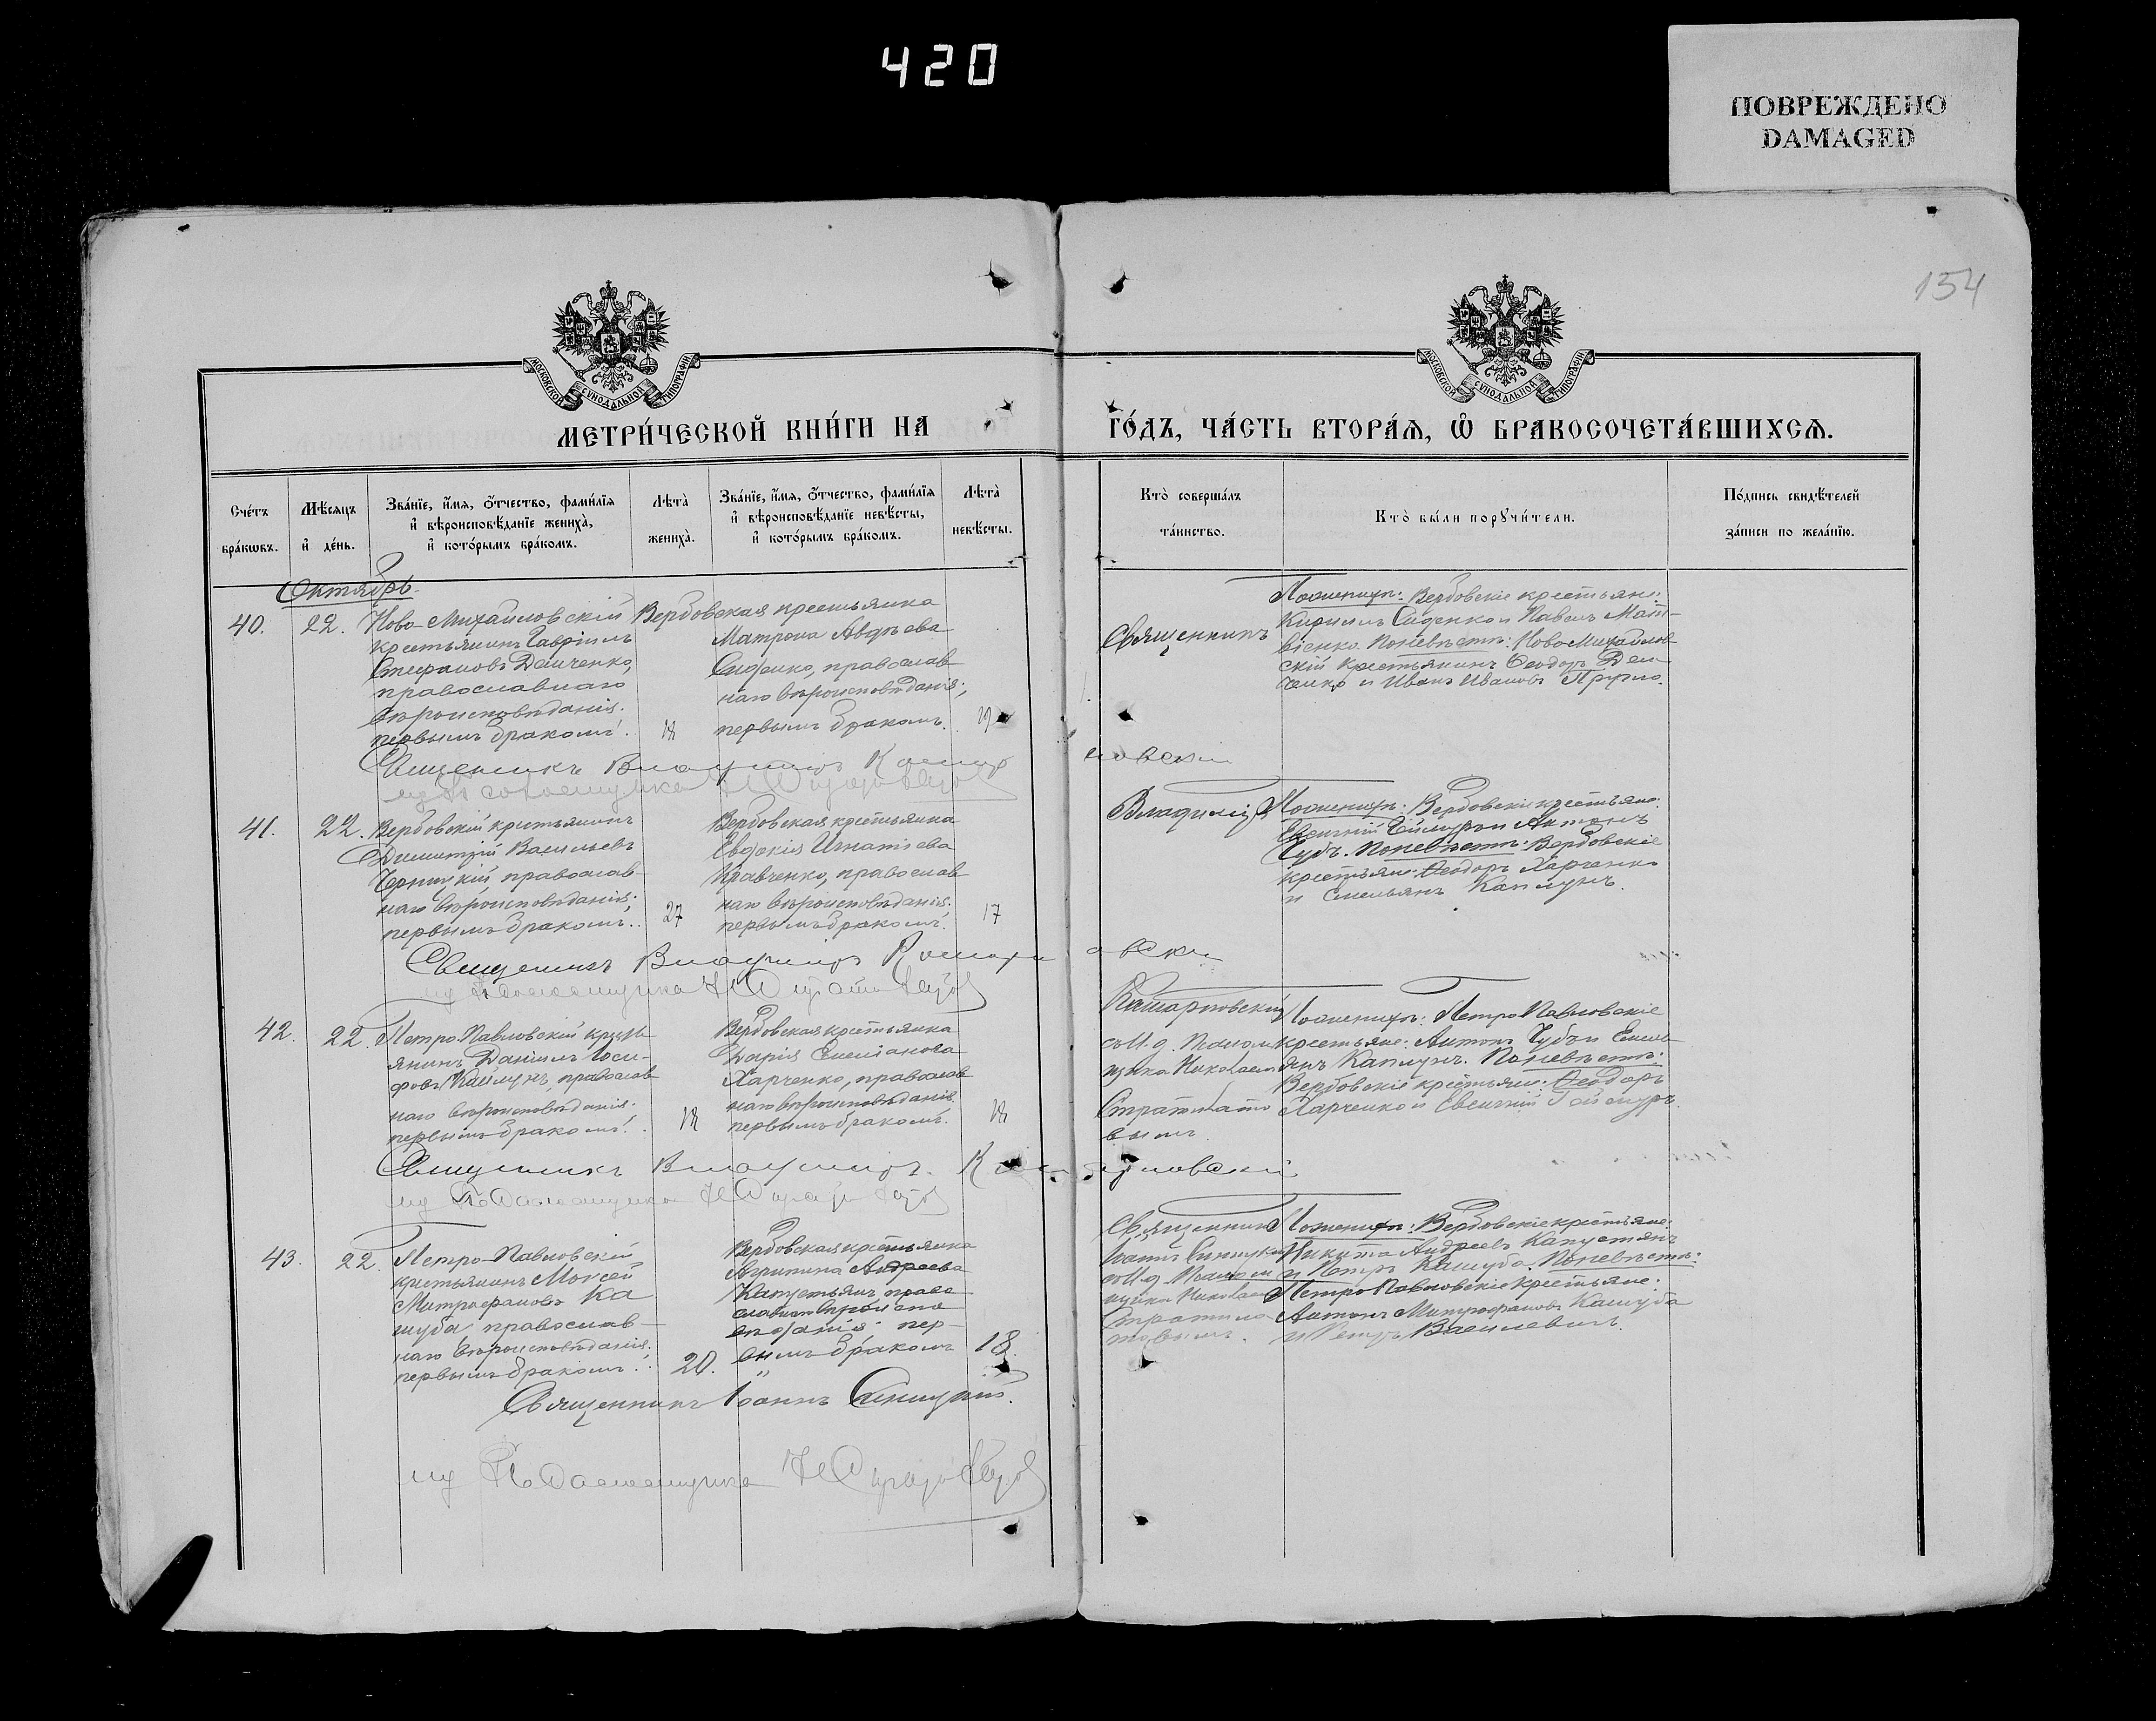 420
ПОВРЕЖДЕНО
DAMAGED
154
МОСКОВСКОЙ СѴНОДАЛЬНОЙ ТИПОГРАФІИ
МОСКОВСКОЙ СѴНОДАЛЬНОЙ ТИПОГРАФІИ
МЕТРИ́ЧЕСКОЙ КНИ́ГИ НА
ГО́ДЪ, ЧА́СТЬ ВТОРА́Ѧ, Ѡ҆ БРАКОСОЧЕТА́ВШИХСѦ.
Сче́тъ бра́кѡвъ.
Мѣ́сяцъ и҆ де́нь.
Зва́нїе, и҆́мя, ѻ҆́тчество, фамі́лїя
и҆ вѣроисповѣ́данїе жениха̀,
и҆ кото́рымъ бра́комъ.
Лѣта̀ жениха̀.
Зва́нїе, и҆́мя, ѻ҆́тчество, фамі́лїя
и҆ вѣроисповѣ́данїе невѣ́сты,
и҆ кото́рымъ бра́комъ.
Лѣта̀ невѣ́сты.
Кто̀ соверша́лъ
та́инство.
Кто̀ бы́ли порꙋчи́тели.
По́дпись свидѣ́телей
за́писи по жела́нїю.
Октябрь.
40.
22.
Ново-Михайловскій
крестьянинъ Гавріилъ
Стефановъ Демченко,
православнаго
вѣроисповѣданія.
первымъ бракомъ.
18
Вербовская крестьянка
Матрона Авдѣева
Сиденко, православ
наго вѣроисповѣданія;
первымъ бракомъ.
19
Священникъ
По женихѣ: Вербовскіе крестьяне:
Кириллъ Сиденко и Павелъ Мат-
віенко. По невѣстѣ: Ново Михайлов
скій крестьянинъ Ѳеодоръ Дем
ченко и Иванъ Ивановъ
Священникъ Владиміръ Комар
новскій
41.
22.
Вербовскій крестьянинъ
Димитрій Васильевъ
православ-
наго вѣроисповѣданія;
первымъ бракомъ.
27
Вербовская крестьянка
Евдокія Игнатіева
Кравченко, православ
наго вѣроисповѣданія.
первымъ бракомъ.
17
Владиміръ
По женихѣ: Вербовскіе крестьяне:
Евгеній и Антонъ
Чубъ. По невѣстѣ: Вербовскіе
крестьяне: Ѳеодоръ Харченко
и Емельянъ Каплунъ.
Священникъ Владиміръ Комарн
овскій
42.
22.
Петро-Павловскій кресть
янинъ Даніилъ Іоси-
фовъ Каплунъ, православ
наго вѣроисповѣданія.
первымъ бракомъ.
18
Вербовская крестьянка
Дарія Емеліанова
Харченко, православ
наго вѣроисповѣданія.
первымъ бракомъ.
18
Комарновскій
съ И. д. Псалом
щика Николаем
Стратилато
вымъ
По женихѣ: Петро Павловскіе
крестьяне: Антонъ Чубъ и Емель
янъ Каплунъ. По невѣстѣ:
Вербовскіе крестьяне: Ѳеодоръ
Харченко и Евгеній
Священникъ Владиміръ Комарновскій
43.
22.
Петро-Павловскій
крестьянинъ Моисей
Митрофановъ Ка
шуба православ-
наго вѣроисповѣданія;
первымъ бракомъ.
20.
Вербовская крестьянка
Агрипина Андреева
Капустьянъ право
славнаго вѣроиспо
вѣданія пер-
вымъ бракомъ
18.
Священникъ
Іоаннъ Синицкій
съ И. д. Псалом
щика Николаем
Стратила
товымъ.
По женихѣ: Вербовскіе крестьяне:
Никита Андреевъ Капустянъ
и Петръ Кашуба. По невѣстѣ:
Петро Павловскіе крестьяне:
Антонъ Митрофановъ Кашуба
и Петръ Василевичъ.
Священникъ Іоаннъ Синицкій.